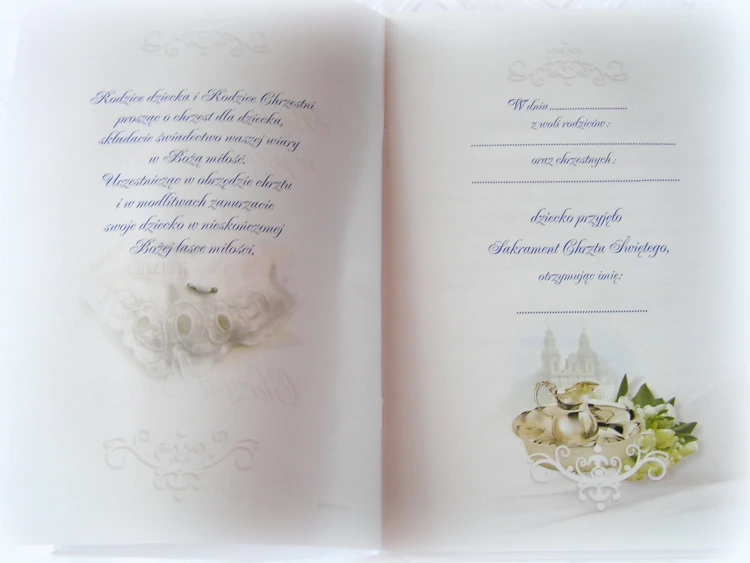 Rodzice dziecka i Rodzice Chrzestni
prosząc o chrzest dla dziecka,
składacie świadectwo waszej wiary
w Bożą miłość.
Uczestnicząc w obrzędzie chrztu
i w modlitwach zanurzacie
swoje dziecko w nieskończonej
Bożej łasce miłości.
W dniu
z woli rodziców:
oraz chrzestnych:
dziecko przyjęło
Sakrament Chrztu Świętego,
otrzymując imię: